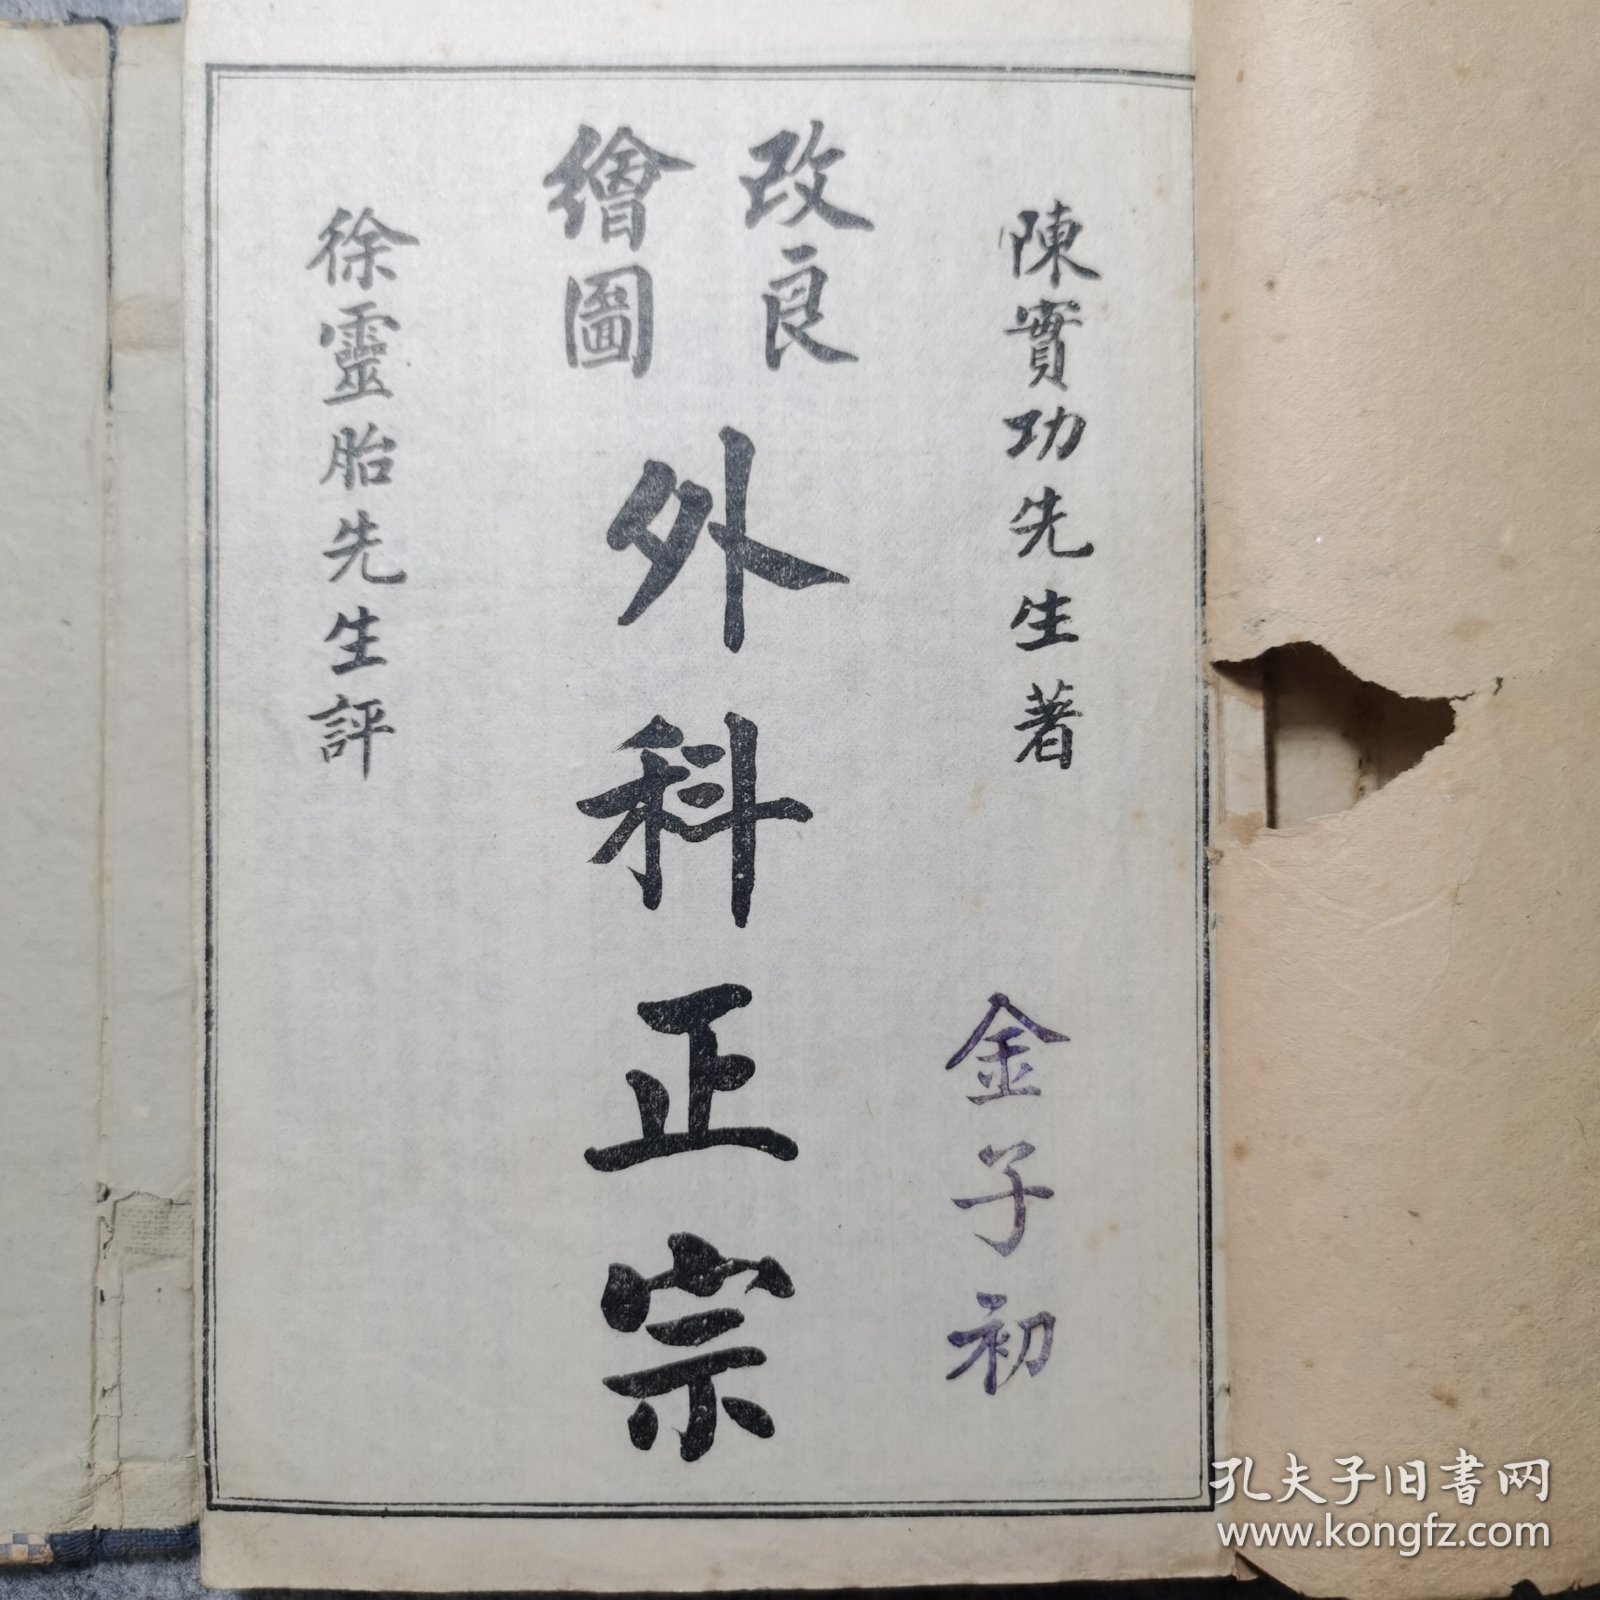 陳實功先生著
金子初
改良
繪圖
外科正宗
徐靈胎先生評
孔夫子旧書网
www.kongfz.com